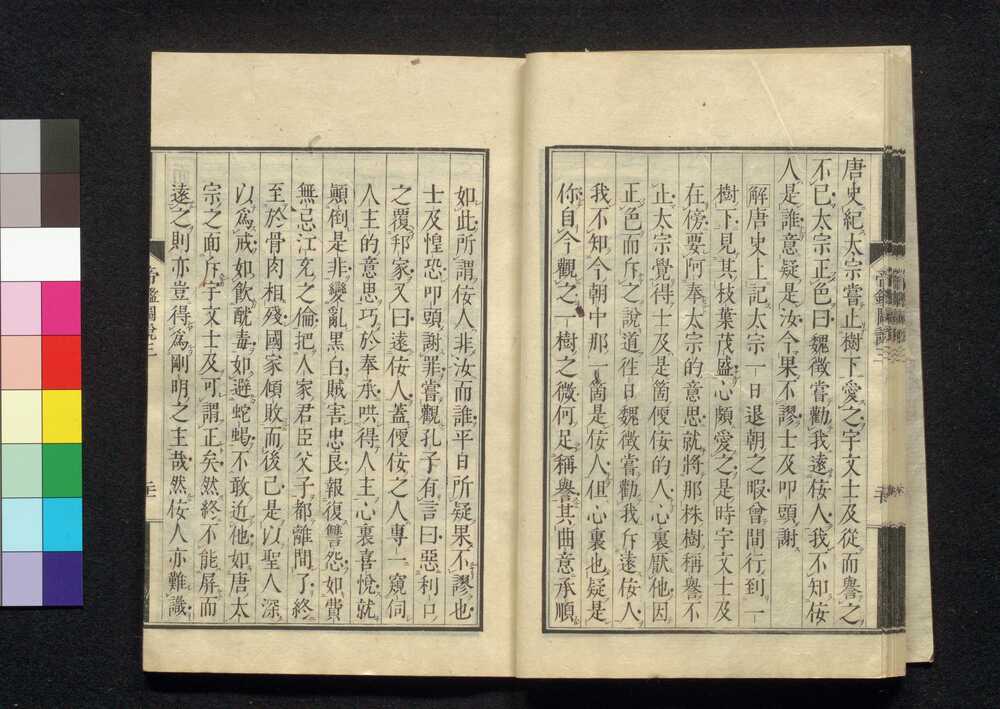 唐史紀太宗嘗止樹下愛之宇文士及從而譽之
不已太宗正色曰魏徵嘗勸我遠佞人我不知佞
人是誰意疑是汝今果不謬士及叩頭謝
解唐史上記太宗一日退朝之暇曾間行到一
樹下見其枝葉茂盛心頗愛之是時宇文士及
在傍要阿奉太宗的意思就將那株樹稱譽不
止太宗覺得士及是箇便佞的人心裏厭他因
正色而斥之說道徃日魏徵嘗勸我斥遠佞人
我不知今朝中那一箇是佞人但心裏也疑是
你自今觀之一樹之微何足稱譽其曲意承順
帝鑑圖說三
二十
如此所謂佞人非汝而誰平日所疑果不謬也
士及惶恐叩頭謝罪嘗觀孔子有言曰惡利口
之覆邦家又曰遠佞人蓋便佞之人專一窺伺
人主的意思巧於奉承哄得人主心裏喜悅就
顛倒是非變亂黑白賊害忠良報復讐怨如費
無忌江充之倫把人家君臣父子都離間了終
至於骨肉相殘國家傾敗而後已是以聖人深
以爲戒如飲酖毒如避蛇蝎不敢近他如唐太
宗之面斥宇文士及可謂正矣然終不能屏而
遠之則亦豈得爲剛明之主哉然佞人亦難識
帝鑑圖說三